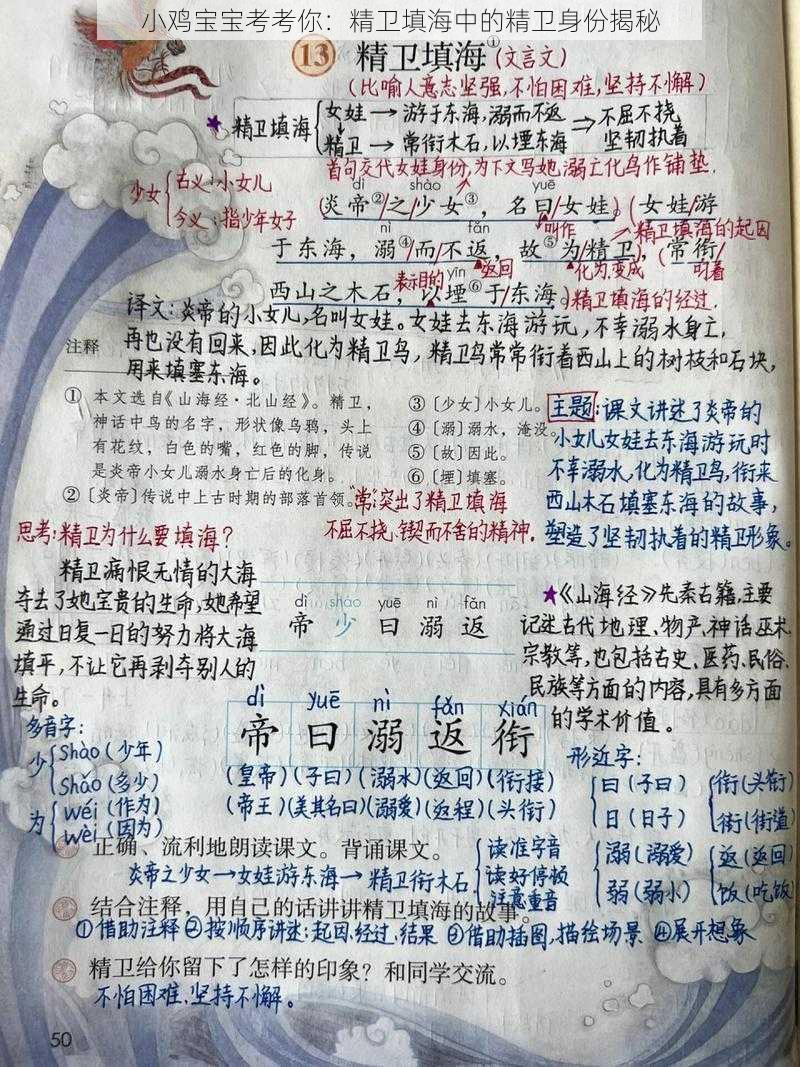 小鸡宝宝考考你：精卫填海中的精卫身份揭秘
13 精卫填海①(文言文)
(比喻人意志坚强,不怕困难,坚持不懈)
★ 精卫填海 女娃→游于东海,溺而不返 ⇒ 不屈不挠
精卫→常衔木石,以堙东海 坚韧执着
首句交代女娃身份,为下文写她溺亡化鸟作铺垫.
少女 古义:小女儿
今义:指少年女子
dì shào yuē
(炎帝②/之/少女③，名曰/女娃。(女娃/游
叫作 精卫填海的起因
nì fǎn
于东海，溺④/而/不返，故⑤为/精卫，)(常衔/
表示目的 返回 化为,变成 叼着
yīn
西山之木石，以堙⑥于/东海。)精卫填海的经过.
译文:炎帝的小女儿,名叫女娃。女娃去东海游玩,不幸溺水身亡,
再也没有回来,因此化为精卫鸟,精卫鸟常常衔着西山上的树枝和石块,
用来填塞东海。
注释
① 本文选自《山海经·北山经》。精卫，
神话中鸟的名字，形状像乌鸦，头上
有花纹，白色的嘴，红色的脚，传说
是炎帝小女儿溺水身亡后的化身。
② 〔炎帝〕传说中上古时期的部落首领。
③ 〔少女〕小女儿。
④ 〔溺〕溺水，淹没。
⑤ 〔故〕因此。
⑥ 〔堙〕填塞。
主题:课文讲述了炎帝的
小女儿女娃去东海游玩时
不幸溺水,化为精卫鸟,衔来
西山木石填塞东海的故事,
塑造了坚韧执着的精卫形象。
"常"突出了精卫填海
不屈不挠、锲而不舍的精神.
思考:精卫为什么要填海?
精卫痛恨无情的大海
夺去了她宝贵的生命,她希望
通过日复一日的努力将大海
填平,不让它再剥夺别人的
生命。
dì shào yuē nì fǎn
帝少曰溺返
★《山海经》先秦古籍,主要
记述古代地理、物产、神话、巫术、
宗教等,也包括古史、医药、民俗、
民族等方面的内容,具有多方面
的学术价值。
dì yuē nì fǎn xián
帝曰溺返衔
(皇帝)(子曰)(溺水)(返回)(衔接)
(帝王)(美其名曰)(溺爱)(返程)(头衔)
多音字:
少 shào(少年)
shǎo(多少)
为 wéi(作为)
wèi(因为)
形近字:
曰(子曰) 衔(头衔)
日(日子) 街(街道)
溺(溺爱) 返(返回)
弱(弱小) 饭(吃饭)
正确、流利地朗读课文。背诵课文。
读准字音
读好停顿
注意重音
炎帝之少女→女娃游东海→精卫衔木石
结合注释，用自己的话讲讲精卫填海的故事。
①借助注释 ②按顺序讲述:起因、经过、结果 ③借助插图,描绘场景 ④展开想象
精卫给你留下了怎样的印象？和同学交流。
不怕困难、坚持不懈。
50